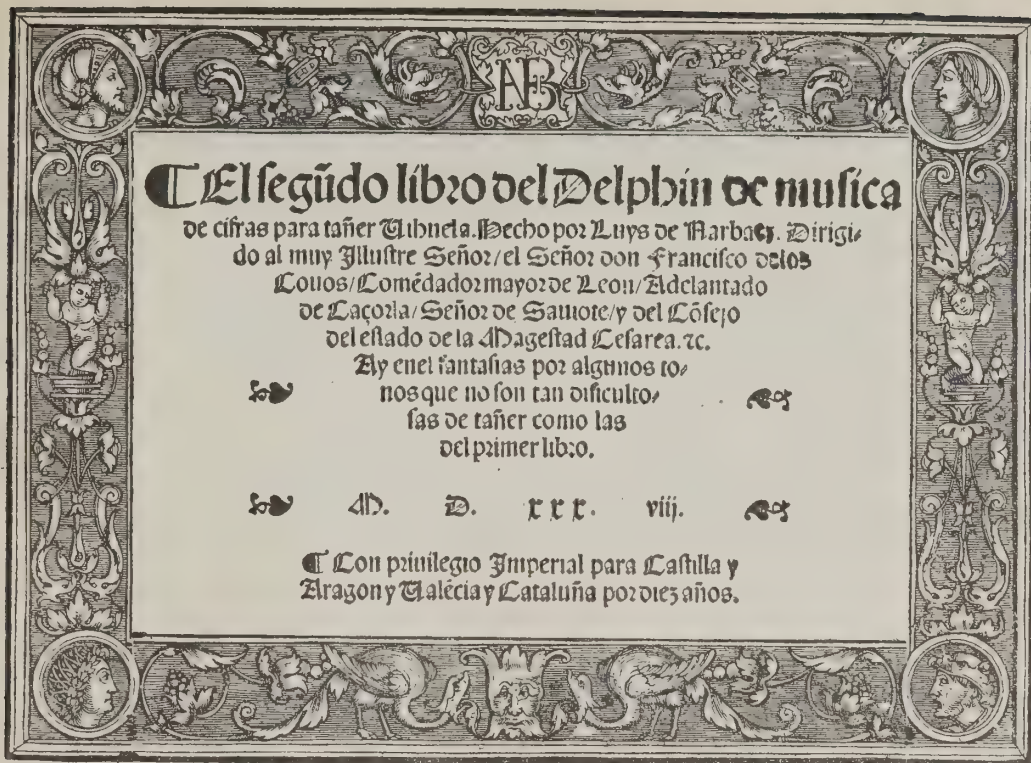 ¶ El segũdo libro del Delphin de musica
de cifras para tañer Uihuela. Hecho por Luys de Narbaez. Dirigi-
do al muy Illustre Señor/el Señor don Francisco delos
Couos/Comẽdador mayor de Leon/Adelantado
de Caçorla/Señor de Sauiote/y del Cõsejo
del estado de la Magestad Cesarea.⁊c.
Ay enel fantasias por algunos to-
nos que no son tan dificulto-
sas de tañer como las
del primer libro.
M. D. xxx. viij.
¶ Con priuilegio Imperial para Castilla y
Aragon y Ualẽcia y Cataluña por diez años.